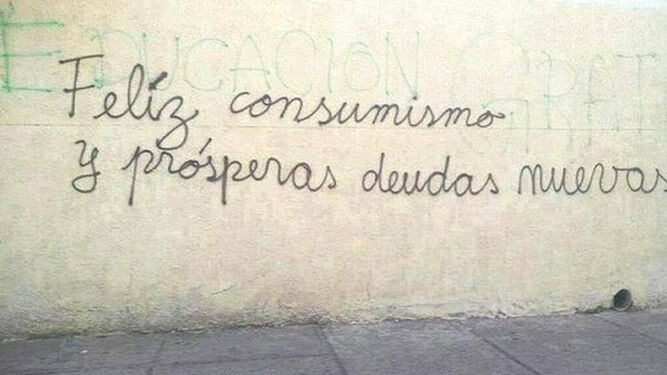 EDUCACION GRATIS
Feliz consumismo
Y prósperas deudas nuevas